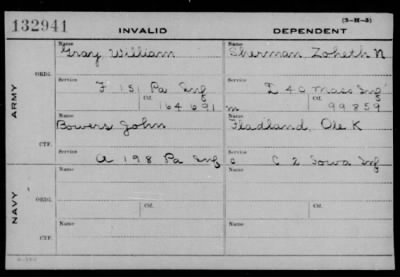 132941
INVALID DEPENDENT
(3-H-5)
ARMY
ORIG.
Name
Gray William
Name
Sherman Zoheth N
Service
F 151 Pa Inf
Service
I 40 Mass Inf
Ctf.
164691
Ctf.
m 99859
CTF.
Name
Bowers John
Name
Fladland, Ole K
Service
A 198 Pa Inf
Service
C 2 Iowa Inf
NAVY
ORIG.
Name
Ctf.
Name
Ctf.
CTF.
Name
Name